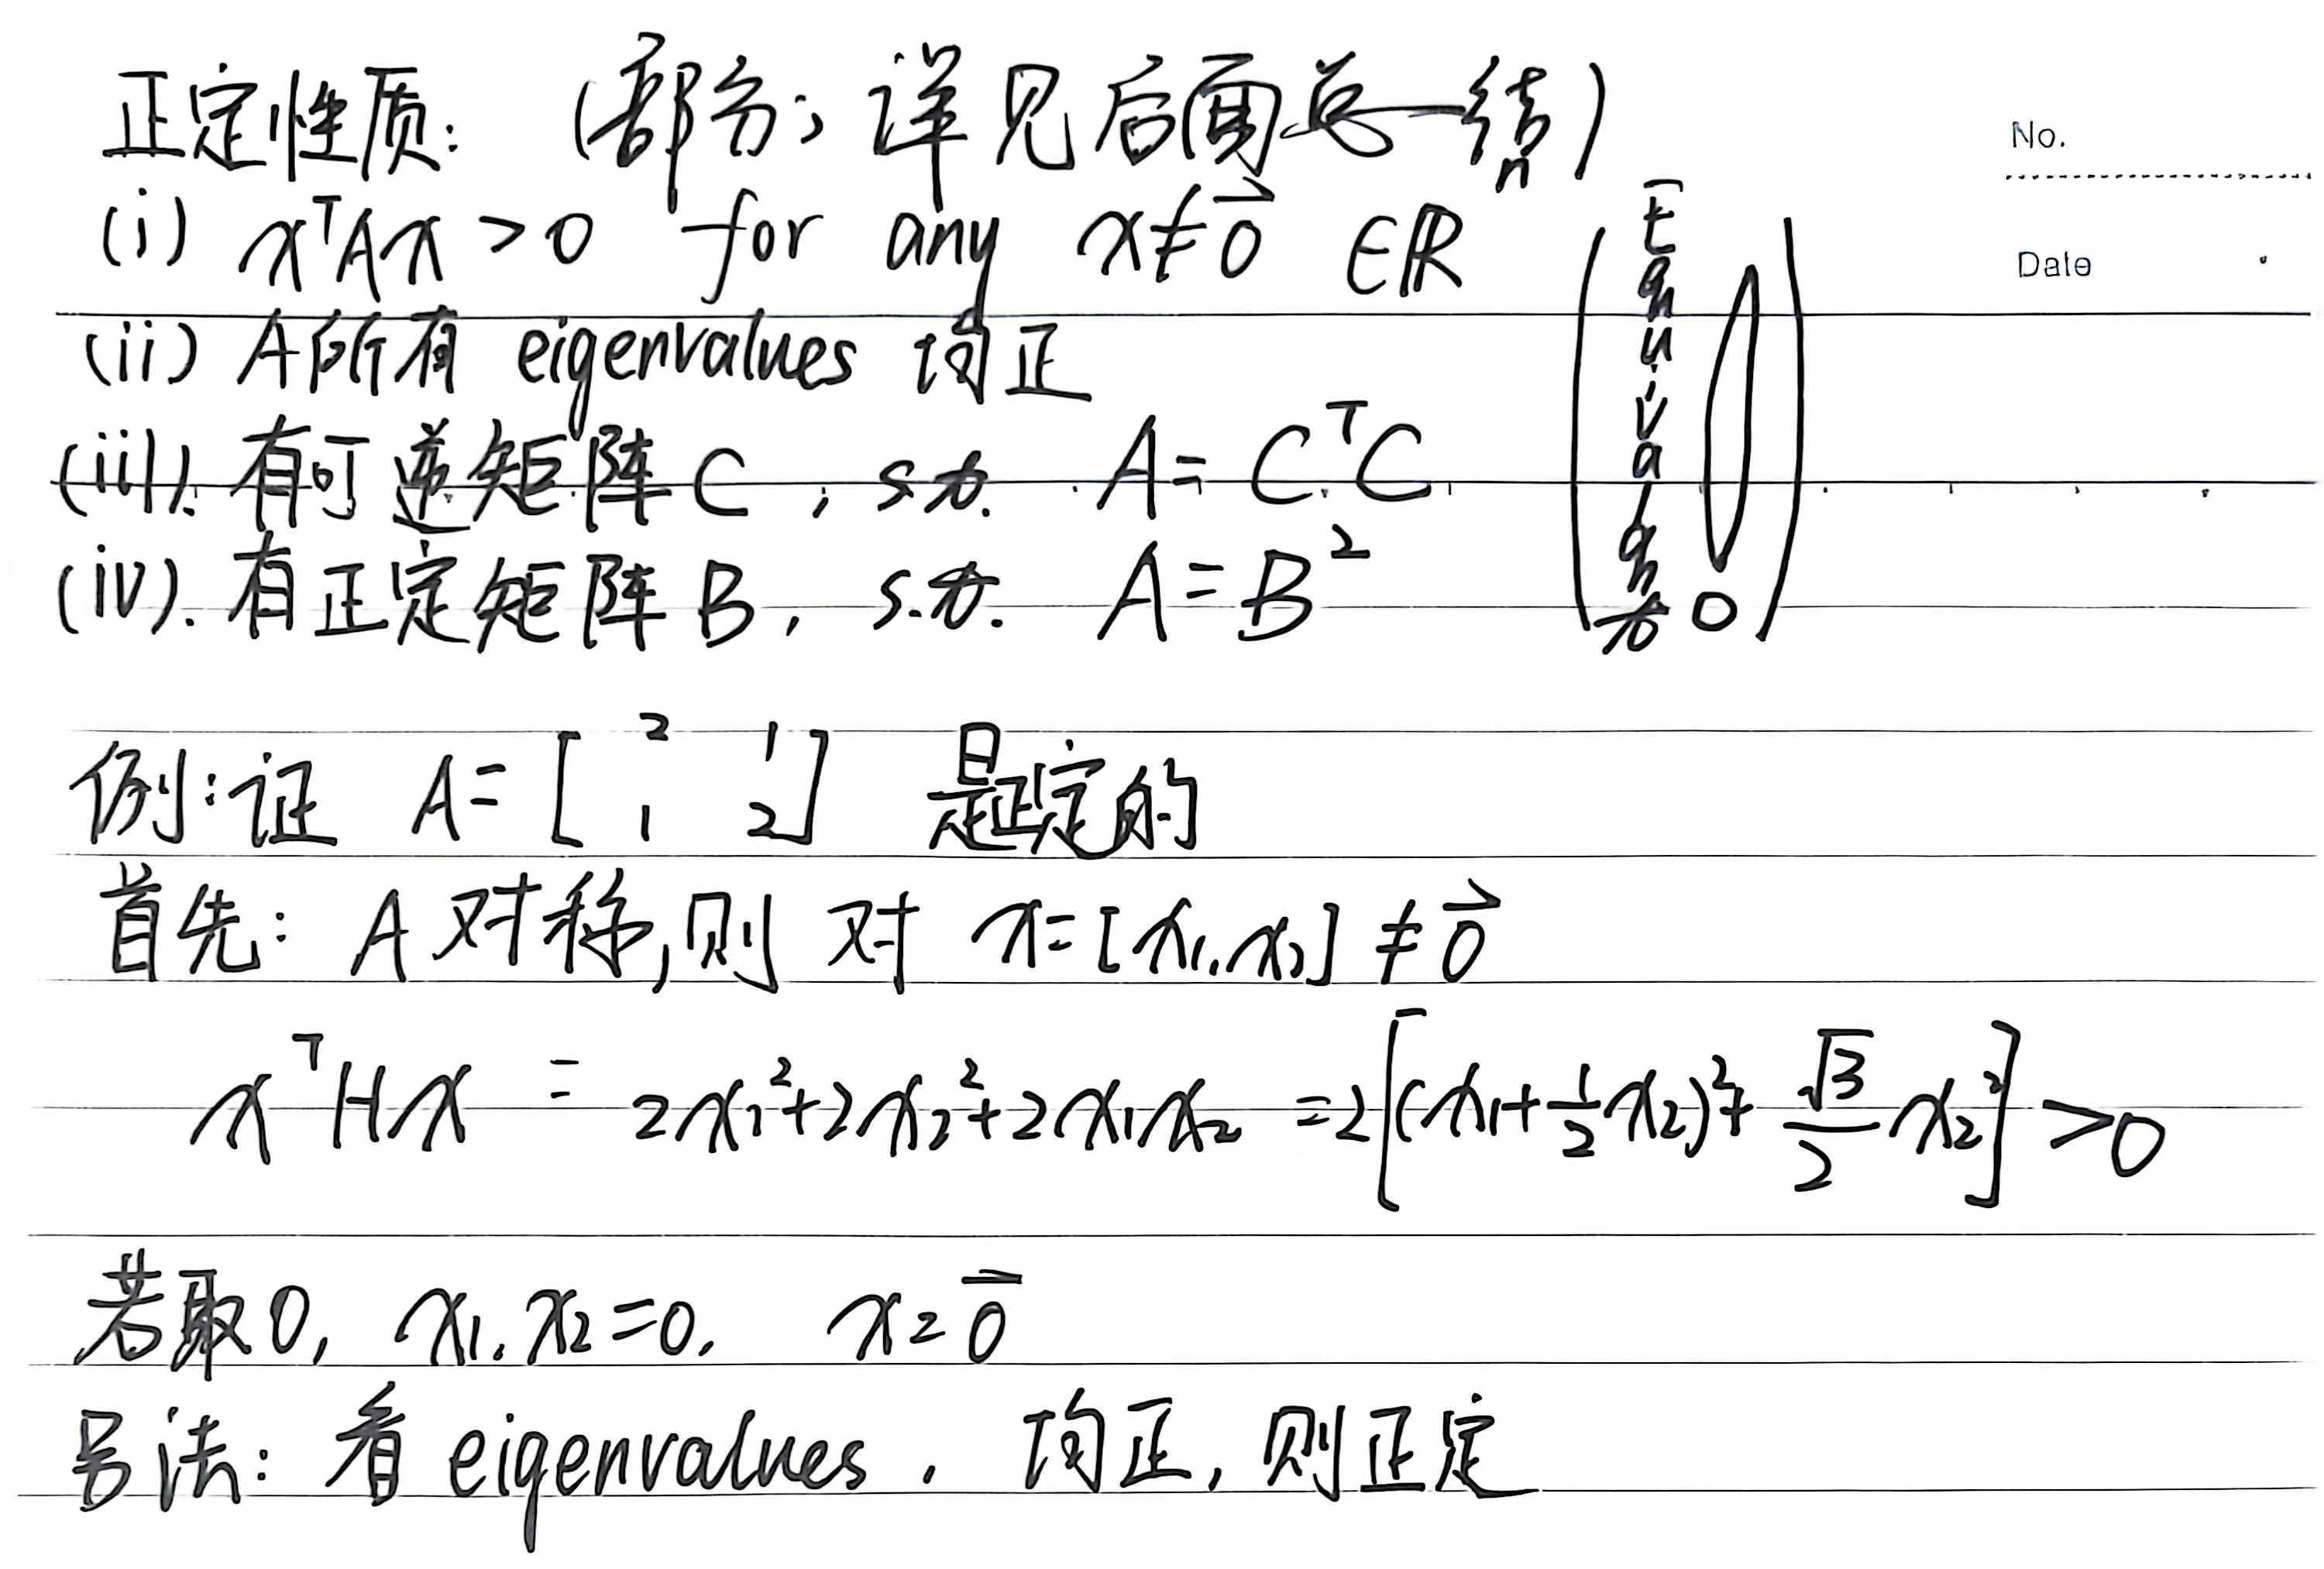 正定性质: (部分; 详见后面总结)
No.
(i) xᵀAx > 0 for any x ≠ 0⃗ ∈ ℝⁿ
Date
(ii) A所有 eigenvalues 均正
(iii). 有可逆矩阵 C , s.t. A = CᵀC
(iv). 有正定矩阵 B, s.t. A = B²
(Equivalent !)
例: 证 A = [2 1
1 2] 是正定的
首先: A 对称, 则 对 x = [x₁, x₂] ≠ 0⃗
xᵀHx = 2x₁² + 2x₂² + 2x₁x₂ = 2[(x₁ + 1/2 x₂)² + √3/2 x₂²] > 0
若取 0, x₁, x₂ = 0, x = 0⃗
另法: 看 eigenvalues. 均正, 则正定